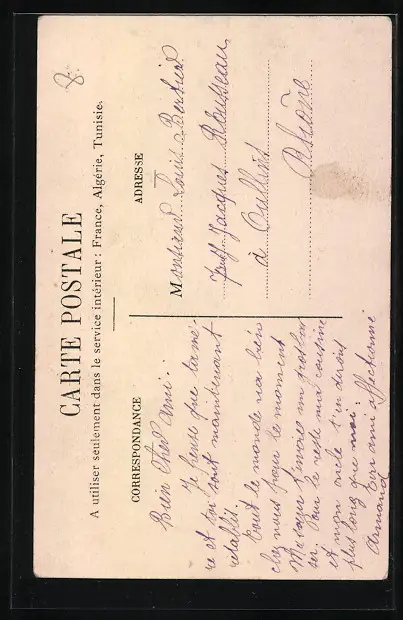 8.
CARTE POSTALE
A utiliser seulement dans le service intérieur: France, Algérie, Tunisie.
CORRESPONDANCE
ADRESSE
Bien cher ami:
Je pense que ta mè-
re et toi sont maintenant
rétablis.
Tout le monde va bien
chez nous pour le moment
Ma sœur t'envoie un gros
ser. Pour le reste ma cousine
et mon oncle t'en diront
plus long que moi:
Ton ami affectionné
Armand
Monsieur Louis
Jacques Rousseau
à Oullins
Rhône